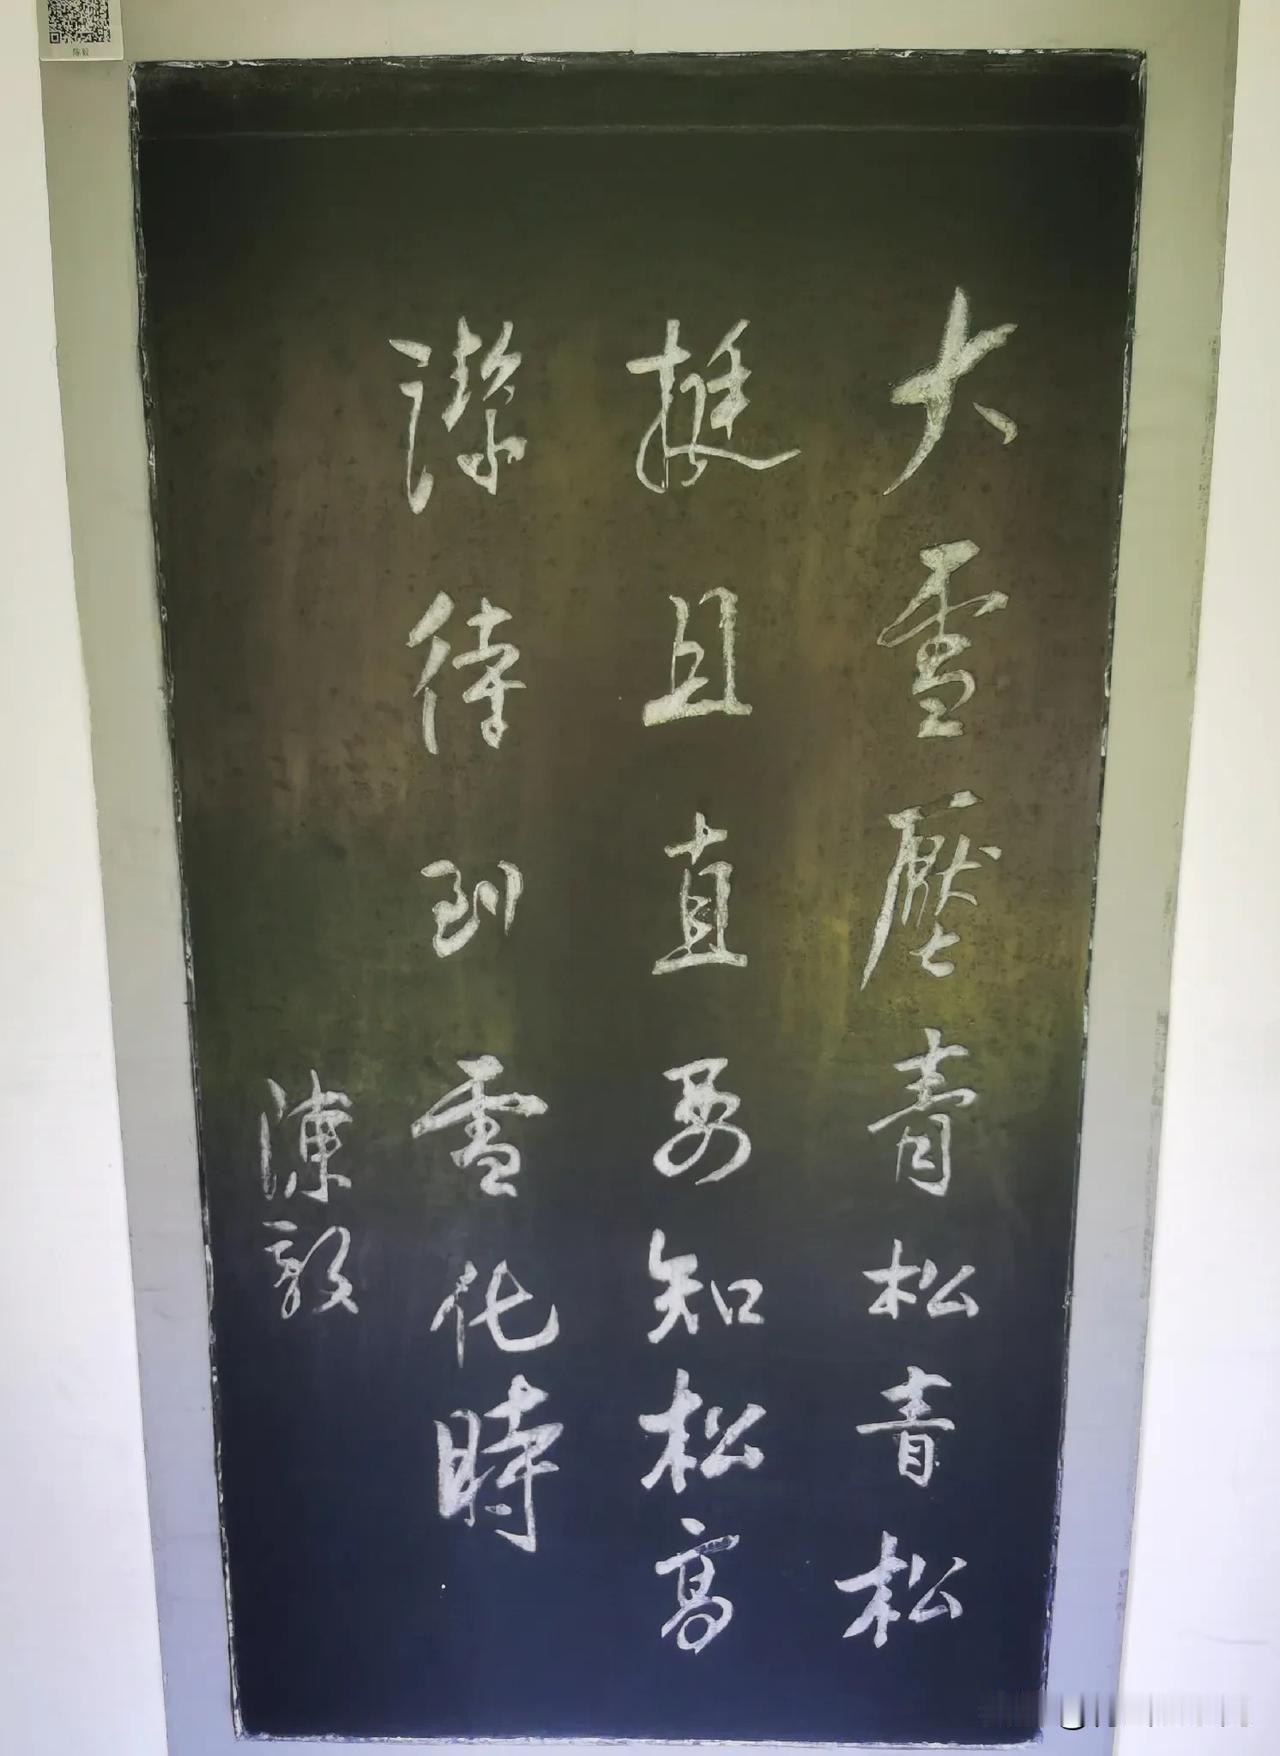 大雪壓青松青松
挺且直要知松高
潔待到雪化時
陳毅
陈毅